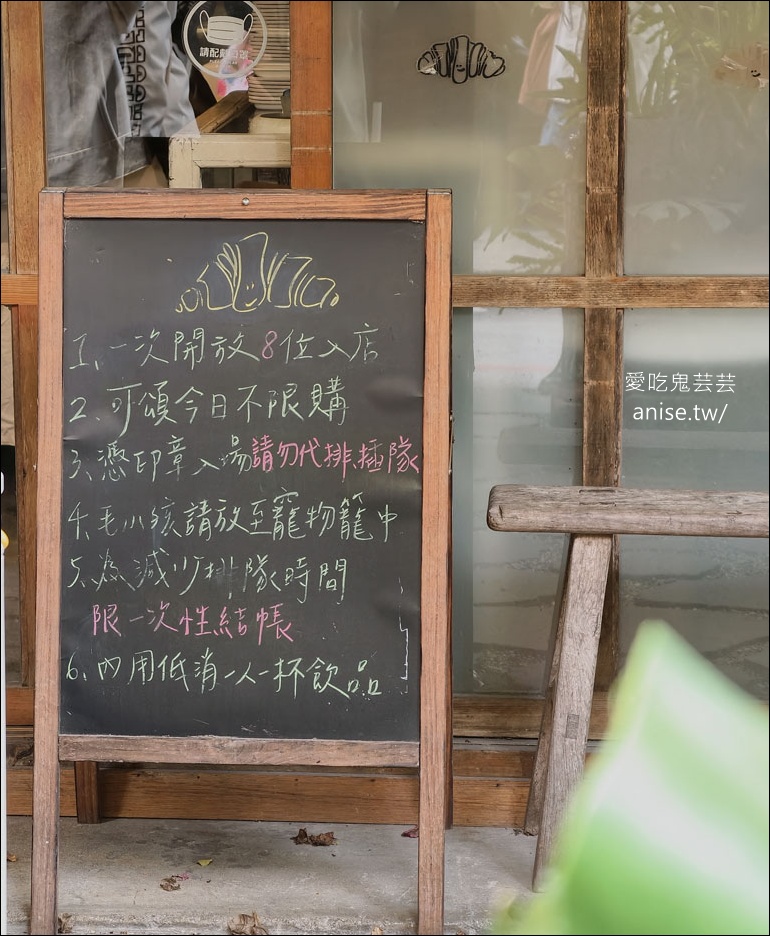 請配戴口罩
1、一次開放8位入店
2、可頌今日不限購
3、憑印章入場請勿代排、插隊
4、毛小孩請放至寵物籠中
5、為減少排隊時間
限一次性結帳
6、內用低消一人一杯飲品
愛吃鬼芸芸
anise.tw/